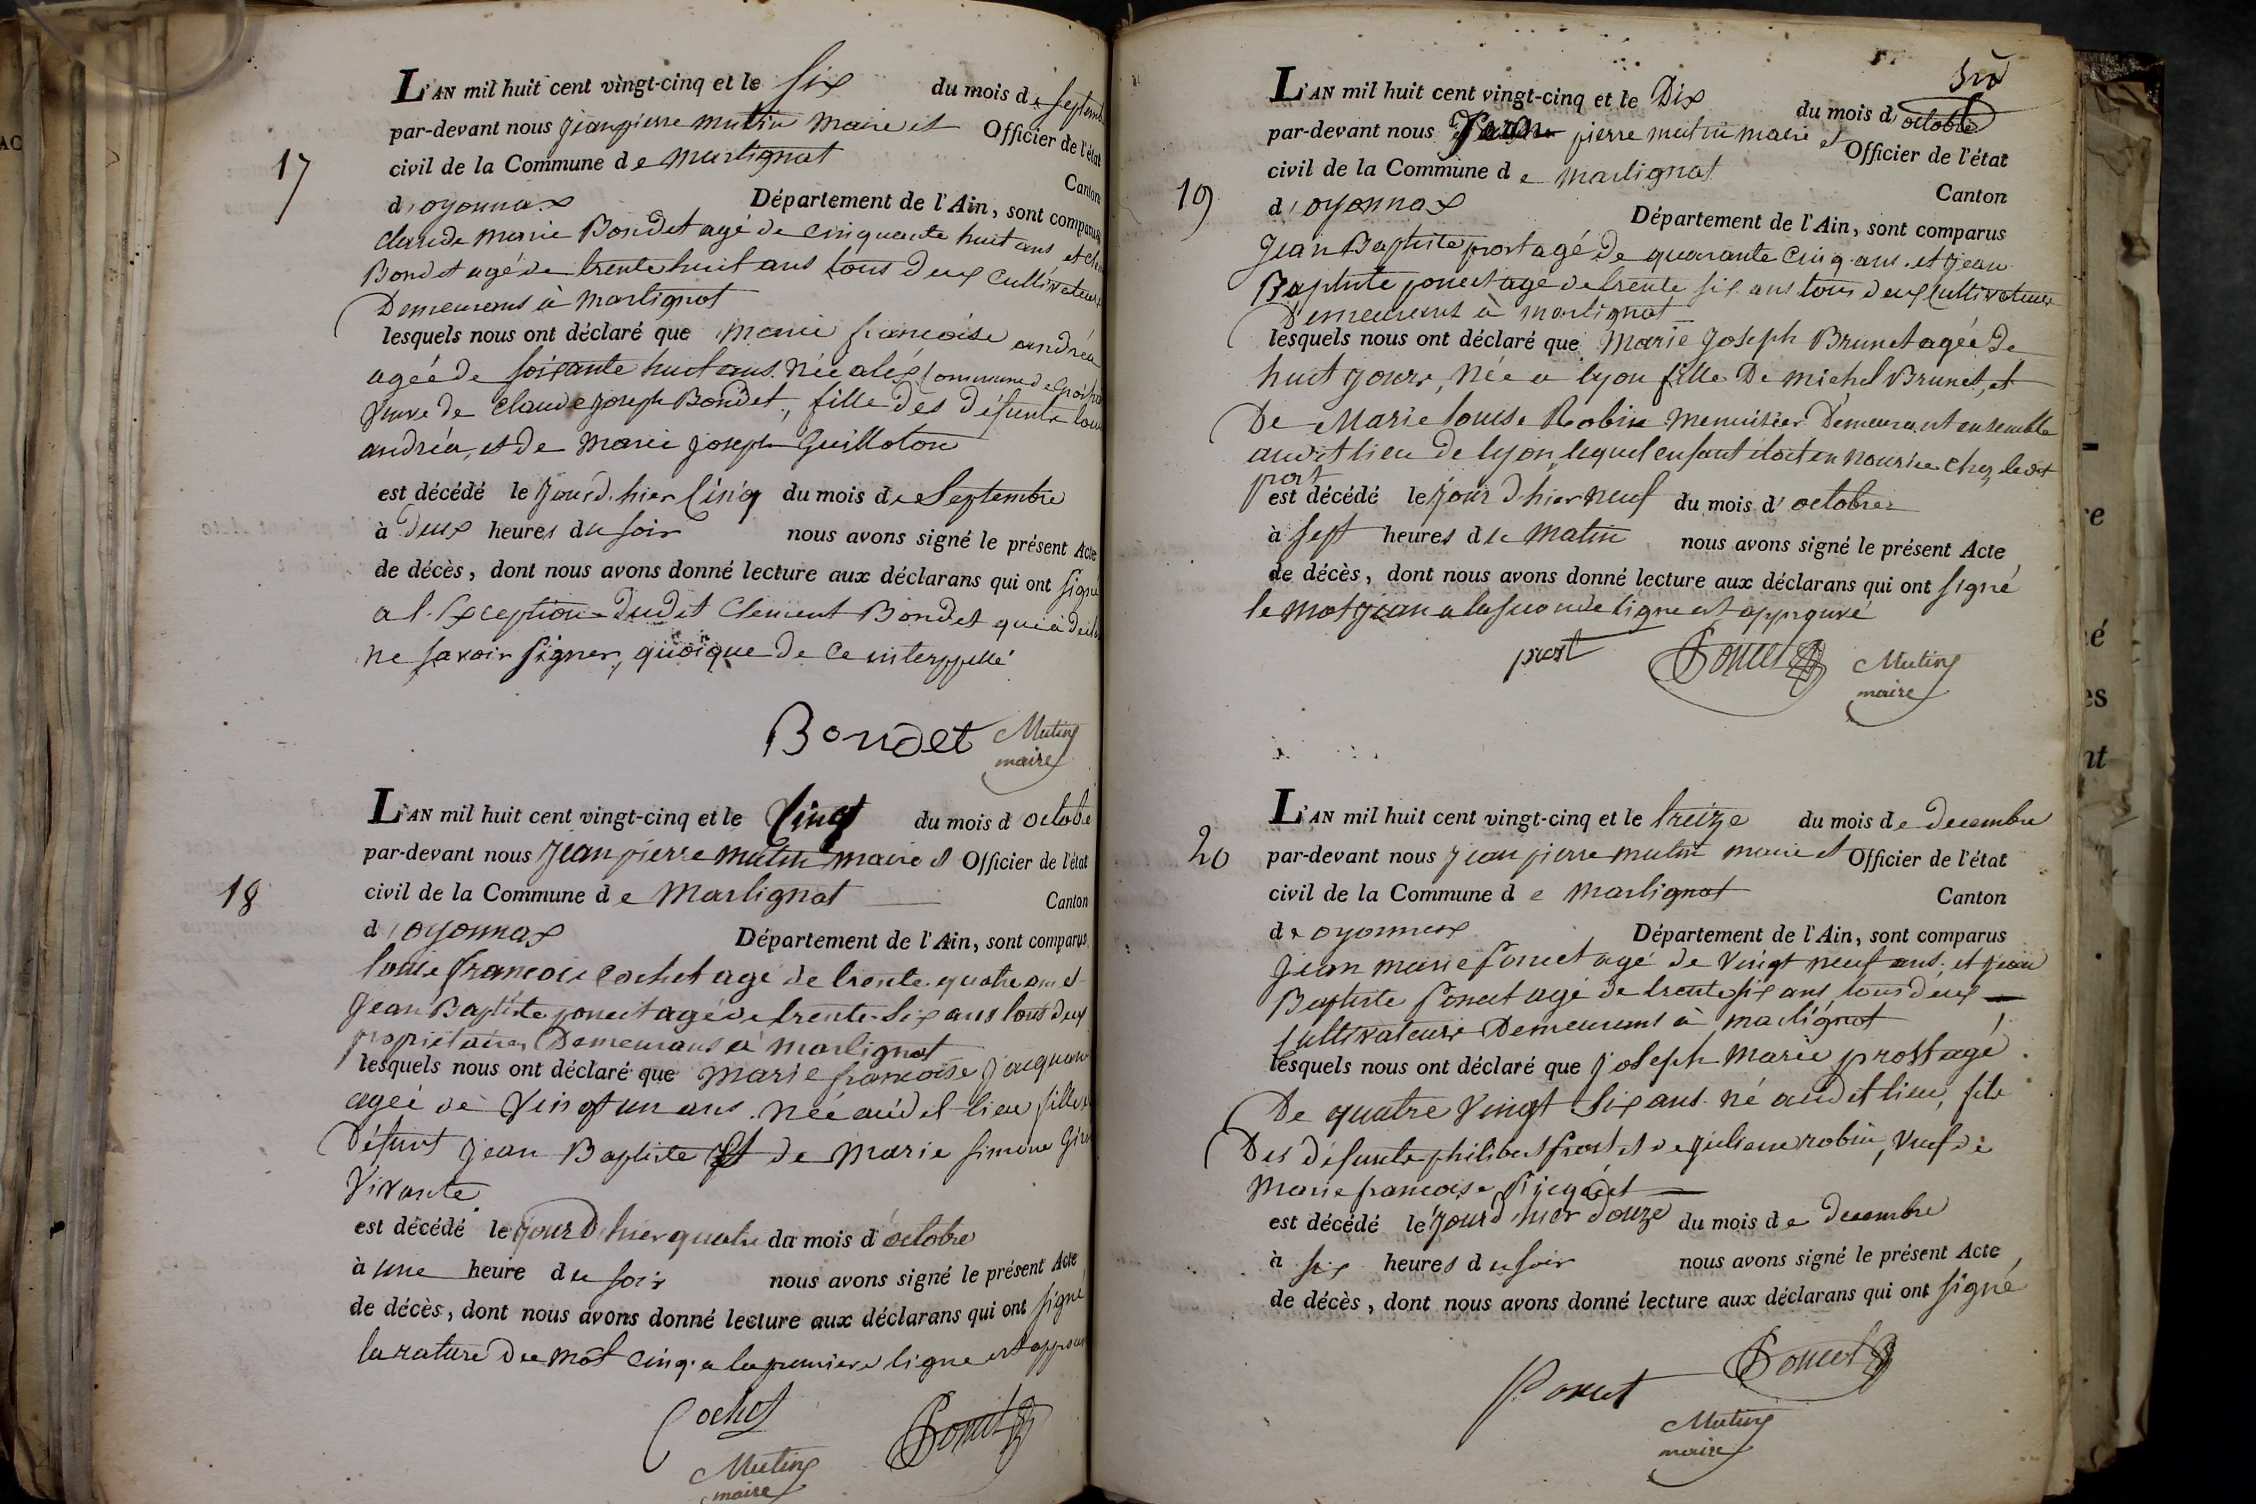 17
L'AN mil huit cent vingt-cinq et le six du mois de septemb
par-devant nous jean pierre mutin maire et Officier de l'état
civil de la Commune de martignat Canton
d'oyonnax Département de l'Ain, sont comparus
claude marie Bondet agé de cinquante huit ans et
Bondet agé de trente huit ans tous deux cultivateurs
Demeurans à martignat
lesquels nous ont déclaré que marie francoise andréa
agée de soixante huit ans. Née alex commune de
veuve de claude joseph Bondet, fille des défunts
andréa, et de marie joseph Guilloton
est décédé le jour d. hier cinq du mois de septembre
à deux heures du soir nous avons signé le présent Acte
de décès, dont nous avons donné lecture aux déclarans qui ont signé
a l'exception dudit Clement Bondet qui a
ne savoir signer, quoique de ce interppellé
Bondet Mutin
maire
18
L'AN mil huit cent vingt-cinq et le Cinq du mois d octob
par-devant nous jean pierre mutin maire et Officier de l'état
civil de la Commune de Martignat Canton
d'oyonnax Département de l'Ain, sont comparus
louis francois cochet agé de trente quatre ans et
jean Baptiste poncet agé de trente six ans tous deux
propriétaires Demeurans à martignat
lesquels nous ont déclaré que marie francoise
agée de vingt un ans. Née audit lieu fille
Défunt jean Baptiste et de marie simone
vivante
est décédé le jour d hier quatre du mois d'octobre
à une heure du soir nous avons signé le présent Acte
de décès, dont nous avons donné lecture aux déclarans qui ont signé
la rature du mot cinq a la premiere ligne est
Cochet Poncet
Mutin
maire
19
L'AN mil huit cent vingt-cinq et le Dix du mois d'octobre
par-devant nous Jean pierre mutin maire et Officier de l'état
civil de la Commune de martignat Canton
d'oyonnax Département de l'Ain, sont comparus
jean Baptiste prost agé de quarante cinq ans. et jean
Baptiste poncet agé de trente six ans tous deux cultivateurs
Demeurant à martignat
lesquels nous ont déclaré que Marie joseph Brunet agée de
huit jours, Née a lyon fille De michel Brunet, et
De Marie louise Robin menuisier Demeurant ensemble
audit lieu de lyon lequel enfant étoit en nourice chez ledit
prost
est décédé le jour d'hier neuf du mois d'octobre
à sept heures du matin nous avons signé le présent Acte
de décès, dont nous avons donné lecture aux déclarans qui ont signé
le mot jean a la seconde ligne est approuvé
prost Poncet Mutin
maire
20
L'AN mil huit cent vingt-cinq et le treize du mois de decembre
par-devant nous jean pierre mutin maire et Officier de l'état
civil de la Commune de martignat Canton
d'oyonnax Département de l'Ain, sont comparus
jean marie poncet agé de vingt neuf ans, et jean
Baptiste Poncet agé de trente six ans tous deux
cultivateurs Demeurans à martignat
lesquels nous ont déclaré que joseph marie prost agé
De quatre vingt six ans né audit lieu, fils
Des défunts philibert prost et de juliene robin, veuf de
marie francoise
est décédé le jour d'hier douze du mois de decembre
à six heures du soir nous avons signé le présent Acte
de décès, dont nous avons donné lecture aux déclarans qui ont signé
Poncet Poncet
Mutin
maire